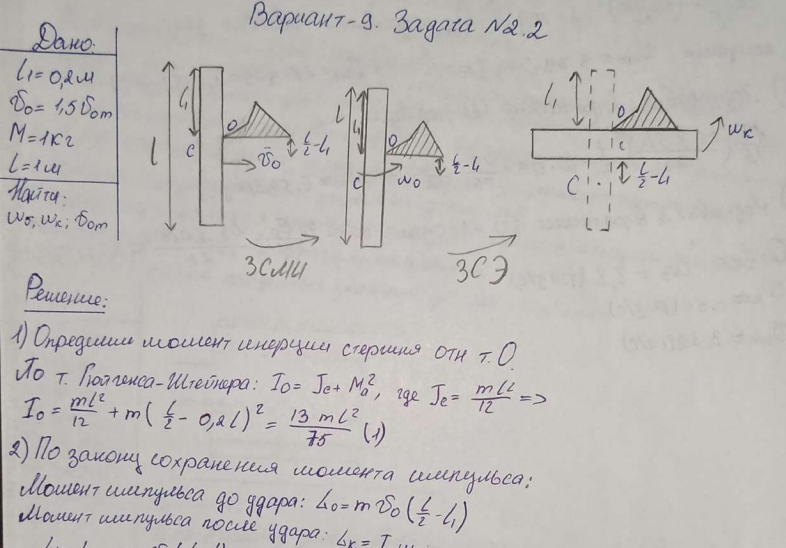 Вариант-9. Задача №2.2
Дано:
l₁=0,2м
v₀=1,5v₀т
M=1кг
l=1м
Найти:
ω₀, ωк; v₀т
l
l₁
O
C
l/2-l₁
v̄₀
l
l₁
O
C
l/2-l₁
ω₀
l₁
O
c
C
l/2-l₁
ωк
ЗСМИ
ЗСЭ
Решение:
1) Определим момент инерции стержня отн т. O.
По т. Гюйгенса-Штейнера: I₀= Jc+ Ma², где Jc= ml²/12 =>
I₀= ml²/12 + m(l/2 - 0,2l)² = 13 ml²/75 (1)
2) По закону сохранения момента импульса:
Момент импульса до удара: L₀=mv₀(l/2-l₁)
Момент импульса после удара: Lк=